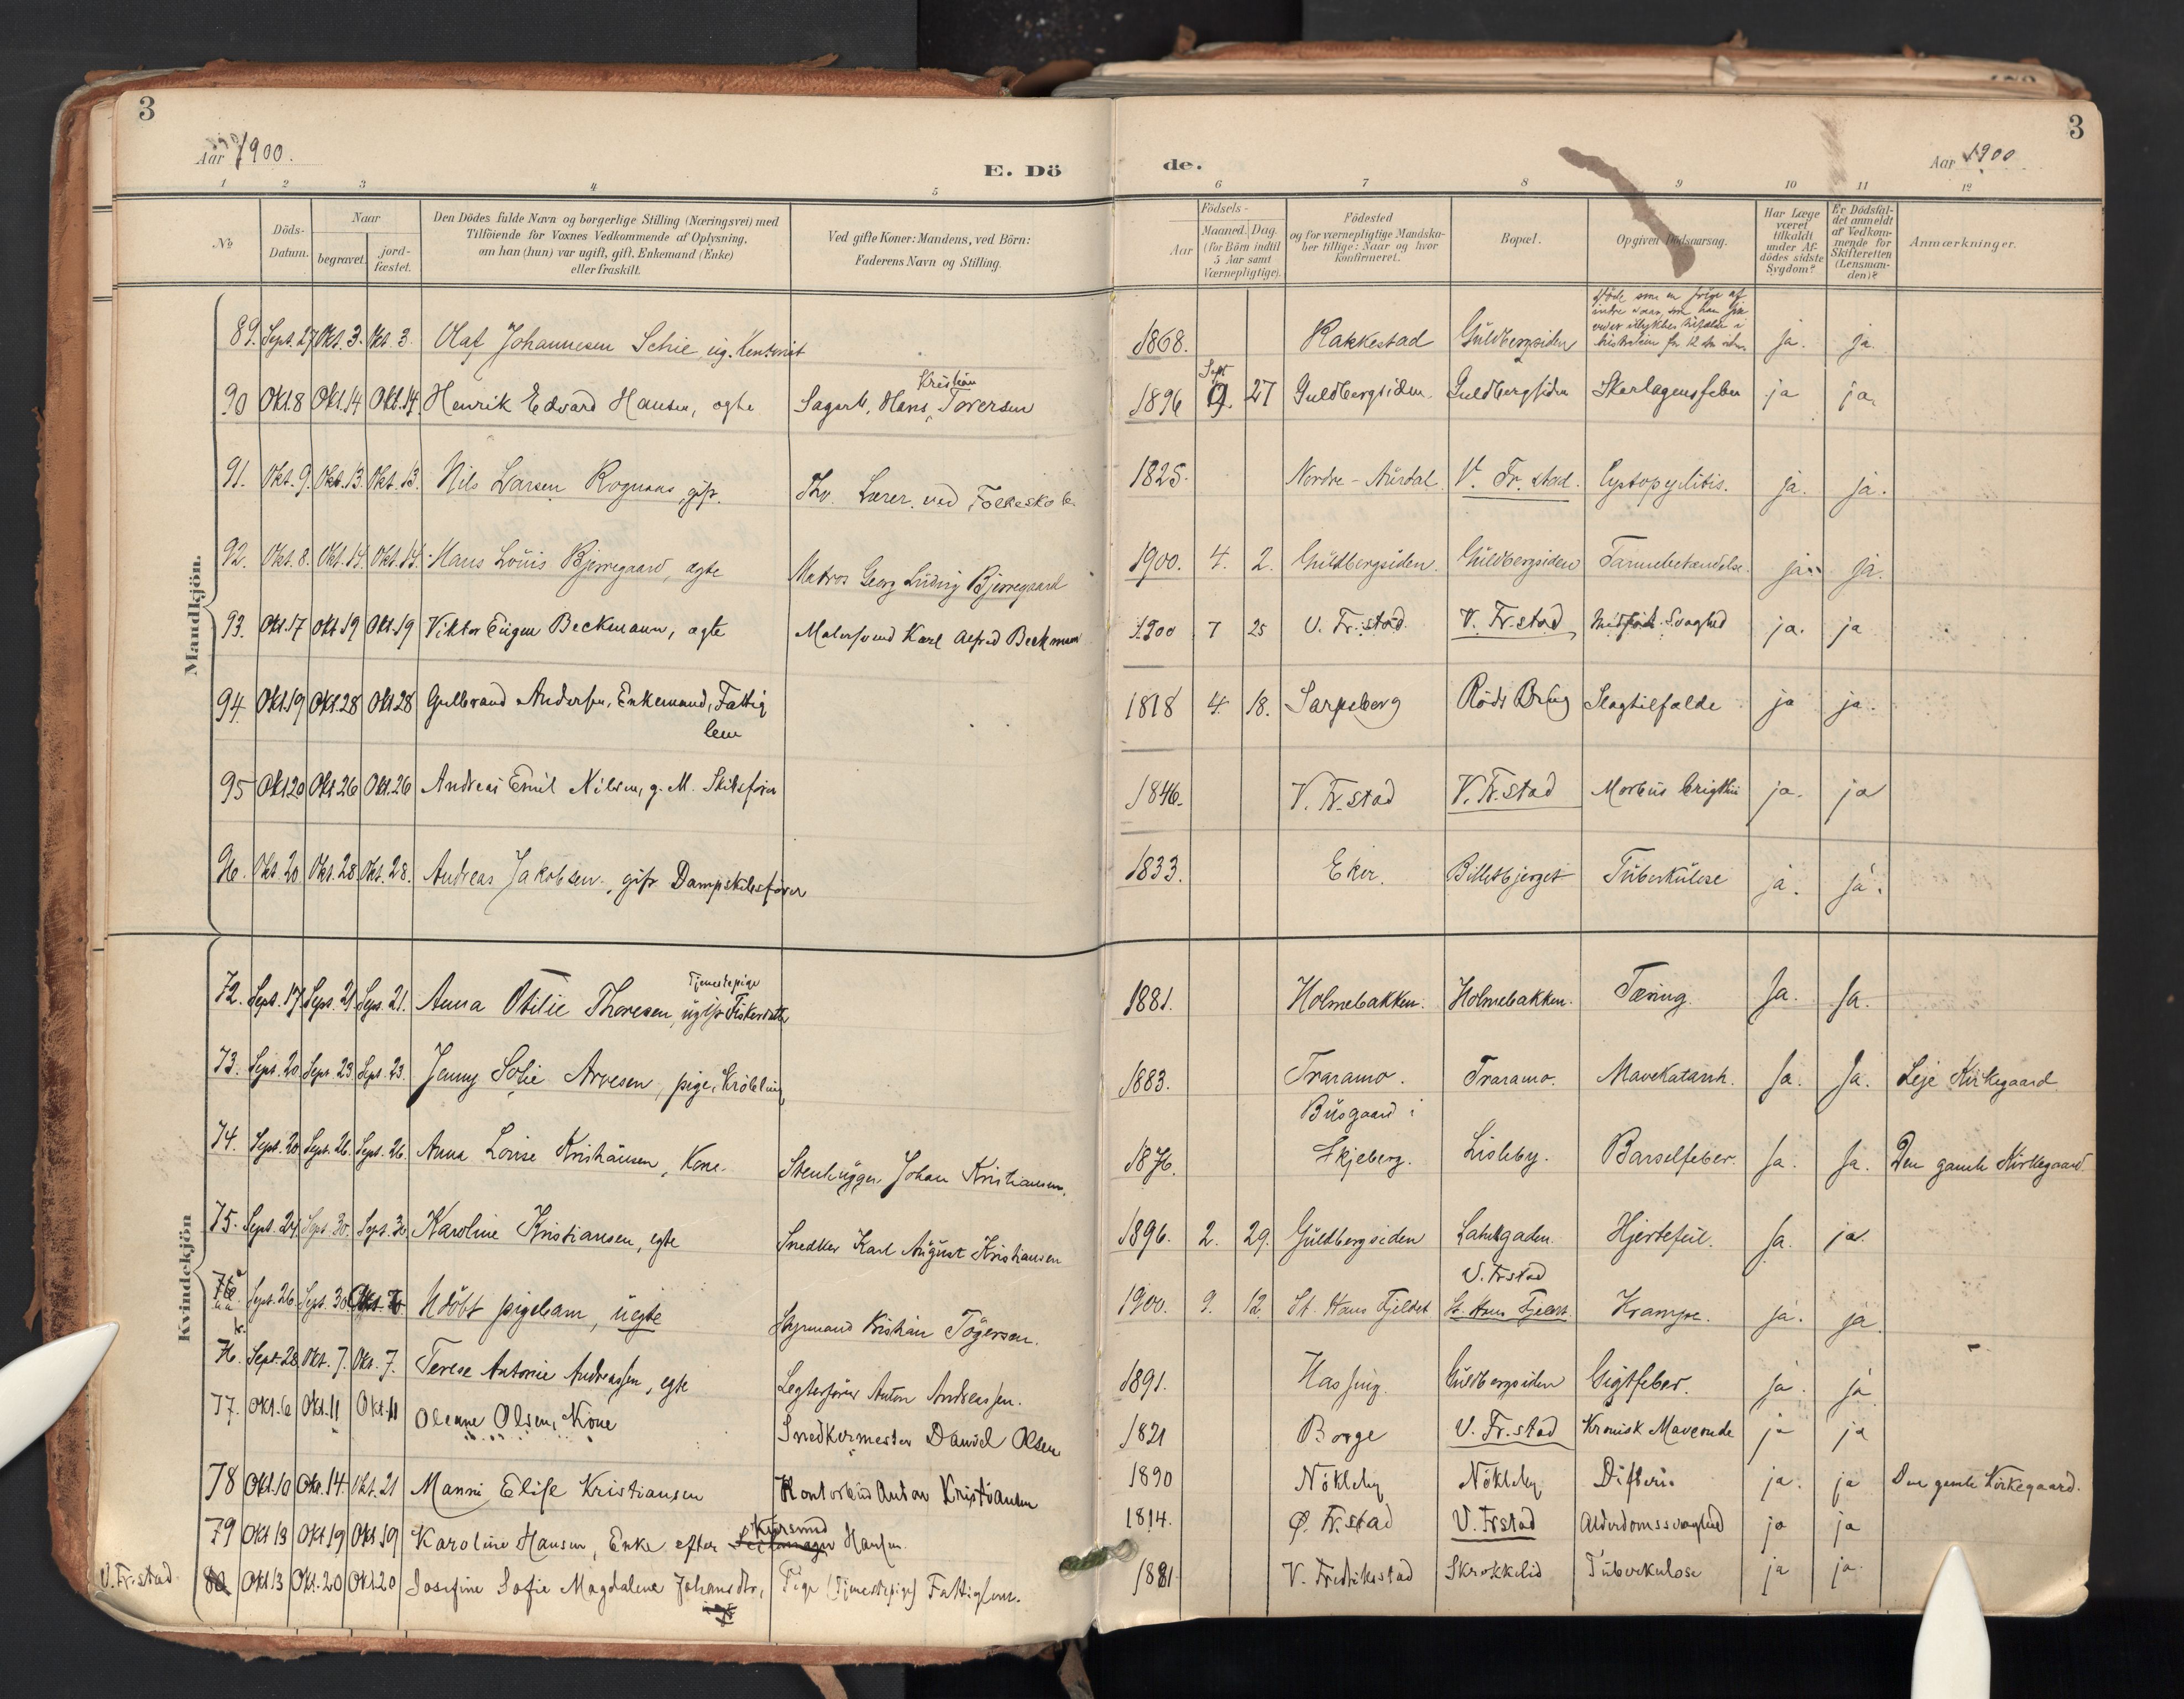 3
3
Aar 1900.
E. Döde.
Aar 1900
1 2 3 4 5 6 7 8 9 10 11 12
No
Döds-Datum.
Naar
begravet.
jord-fæstet.
Den Dödes fulde Navn og borgerlige Stilling (Næringsvei) med
Tilföiende for Voxnes Vedkommende af Oplysning,
om han (hun) var ugift, gift, Enkemand (Enke)
eller fraskilt.
Ved gifte Koner: Mandens, ved Börn:
Faderens Navn og Stilling.
Födsels-
Aar
Maaned. Dag.
(for Börn indtil
5 Aar samt
Værnepligtige).
Födested
og for værnepligtige Mandska-
ber tillige: Naar og hvor
Konfirmeret.
Bopæl.
Opgiven Dödsaarsag.
Har Læge
været
tilkaldt
under Af-
dödes sidste
Sygdom?
Er Dödsfal-
det anmeldt
af Vedkom-
mende for
Skifteretten
(Lensman-
den)?
Anmærkninger.
Mandkjön.
89. Sept. 27 Okt. 3. Okt. 3. Olaf Johannesen Schie, ug. 1868. Rakkestad Guldbergsiden ja. ja.
90 Okt. 8 Okt. 14 Okt. 14. Henrik Edvard Hansen, ægte Sagarb. Hans Kristian Iversen 1896 Sept 9. 27 Guldbergsiden. Guldbergsiden Skarlagensfeber ja ja.
91. Okt. 9. Okt. 13. Okt. 13. Nils Larsen Rognaas, gift. Fhv. Lærer ved Folkeskole 1825. Nordre-Aurdal V. Fr.stad. Cystopyelitis. ja. ja.
92. Okt. 8. Okt. 14. Okt. 14. Hans Louis Bjerregaard, ægte Matros Georg Ludvig Bjerregaard 1900. 4. 2. Guldbergsiden. Guldbergsiden ja. ja.
93. Okt. 17 Okt 19 Okt. 19 Viktor Eugen Beckmann, ægte Malersvend Karl Alfred Beckmann 1900 7 25 V. Fr.stad. V. Fr.stad Medfødt Svaghed ja. ja
94. Okt. 19 Okt. 28 Okt 28 Gulbrand Andersen, Enkemand, Fattig
lem 1818 4. 18. Sarpsborg Röds Brug Slagtilfælde ja ja.
95 Okt. 20 Okt. 26 Okt. 26 Andreas Emil Nilsen, g. M. Skibsfører 1846. V. Fr.stad V. Fr.stad Morbus Brigthii ja. ja
96. Okt. 20 Okt. 28 Okt. 28. Andreas Jakobsen, gift Dampskibsfører 1833. Eker. Billitbjerget Tuberkulose ja. ja.
Kvindekjön
72. Sept. 17. Sept. 21. Sept. 21. Anna Otilie Thoresen, ugift Tjenestepige Fiskerdatter 1881. Holmebakken. Holmebakken. Tæring. Ja. Ja.
73. Sept. 20. Sept. 23. Sept. 23. Jenny Sofie Arvesen, pige, Krøbling 1883. Traramo. Traramo. Mavekatarrh. Ja. Ja. Leje Kirkegaard
74. Sept. 20. Sept. 26. Sept. 26. Anna Lovise Kristiansen, Kone. Stenhugger Johan Kristiansen. 1876. Busgaard i
Skjeberg. Lisleby. Barselfeber. Ja. Ja. Den gamle Kirkegaard.
75. Sept. 24. Sept. 30. Sept. 30. Karoline Kristiansen, egte Snedker Karl August Kristiansen 1896. 2. 29. Guldbergsiden Lahellegaden. Hjertefeil. Ja. ja.
76 a. Sept. 26. Sept. 30. Udöbt pigebarn, uegte Styrmand Kristian Tögersen. 1900. 9. 12. St. Hans Fjeldet V. Fr.stad
St. Hans Fjeldet. Krampe. ja. ja.
76. b. Sept. 28. Okt. 7. Okt. 7. Terese Antonie Andreassen, egte Legterfører Anton Andreassen. 1891. Guldbergsiden Gigtfeber. ja. ja
77. Okt. 6 Okt. 11 Okt. 11 Oleane Olsen, Kone Snedkermester Daniel Olsen 1821 Borge V. Fr.stad Kronisk Maveonde ja ja
78 Okt. 10 Okt. 14. Okt. 21 Manni Elise Kristiansen Kontorbud Anton Kristiansen 1890 Nökleby Nökleby Difteri. ja. ja Den gamle Kirkegaard.
79 Okt 13 Okt 19 Okt 19 Karoline Hansen, Enke efter Kursmd Hansen. 1814. Ø. Fr.stad V. Frstad Alderdomssvaghed ja ja
V. Fr.stad. 80 Okt. 13 Okt. 20 Okt. 20 Josefine Sofie Magdalene Johansdtr., Pige (Tjenestepige) Fattiglem. 1881 V. Fredrikstad Skrokkelid Tuberkulose ja ja.